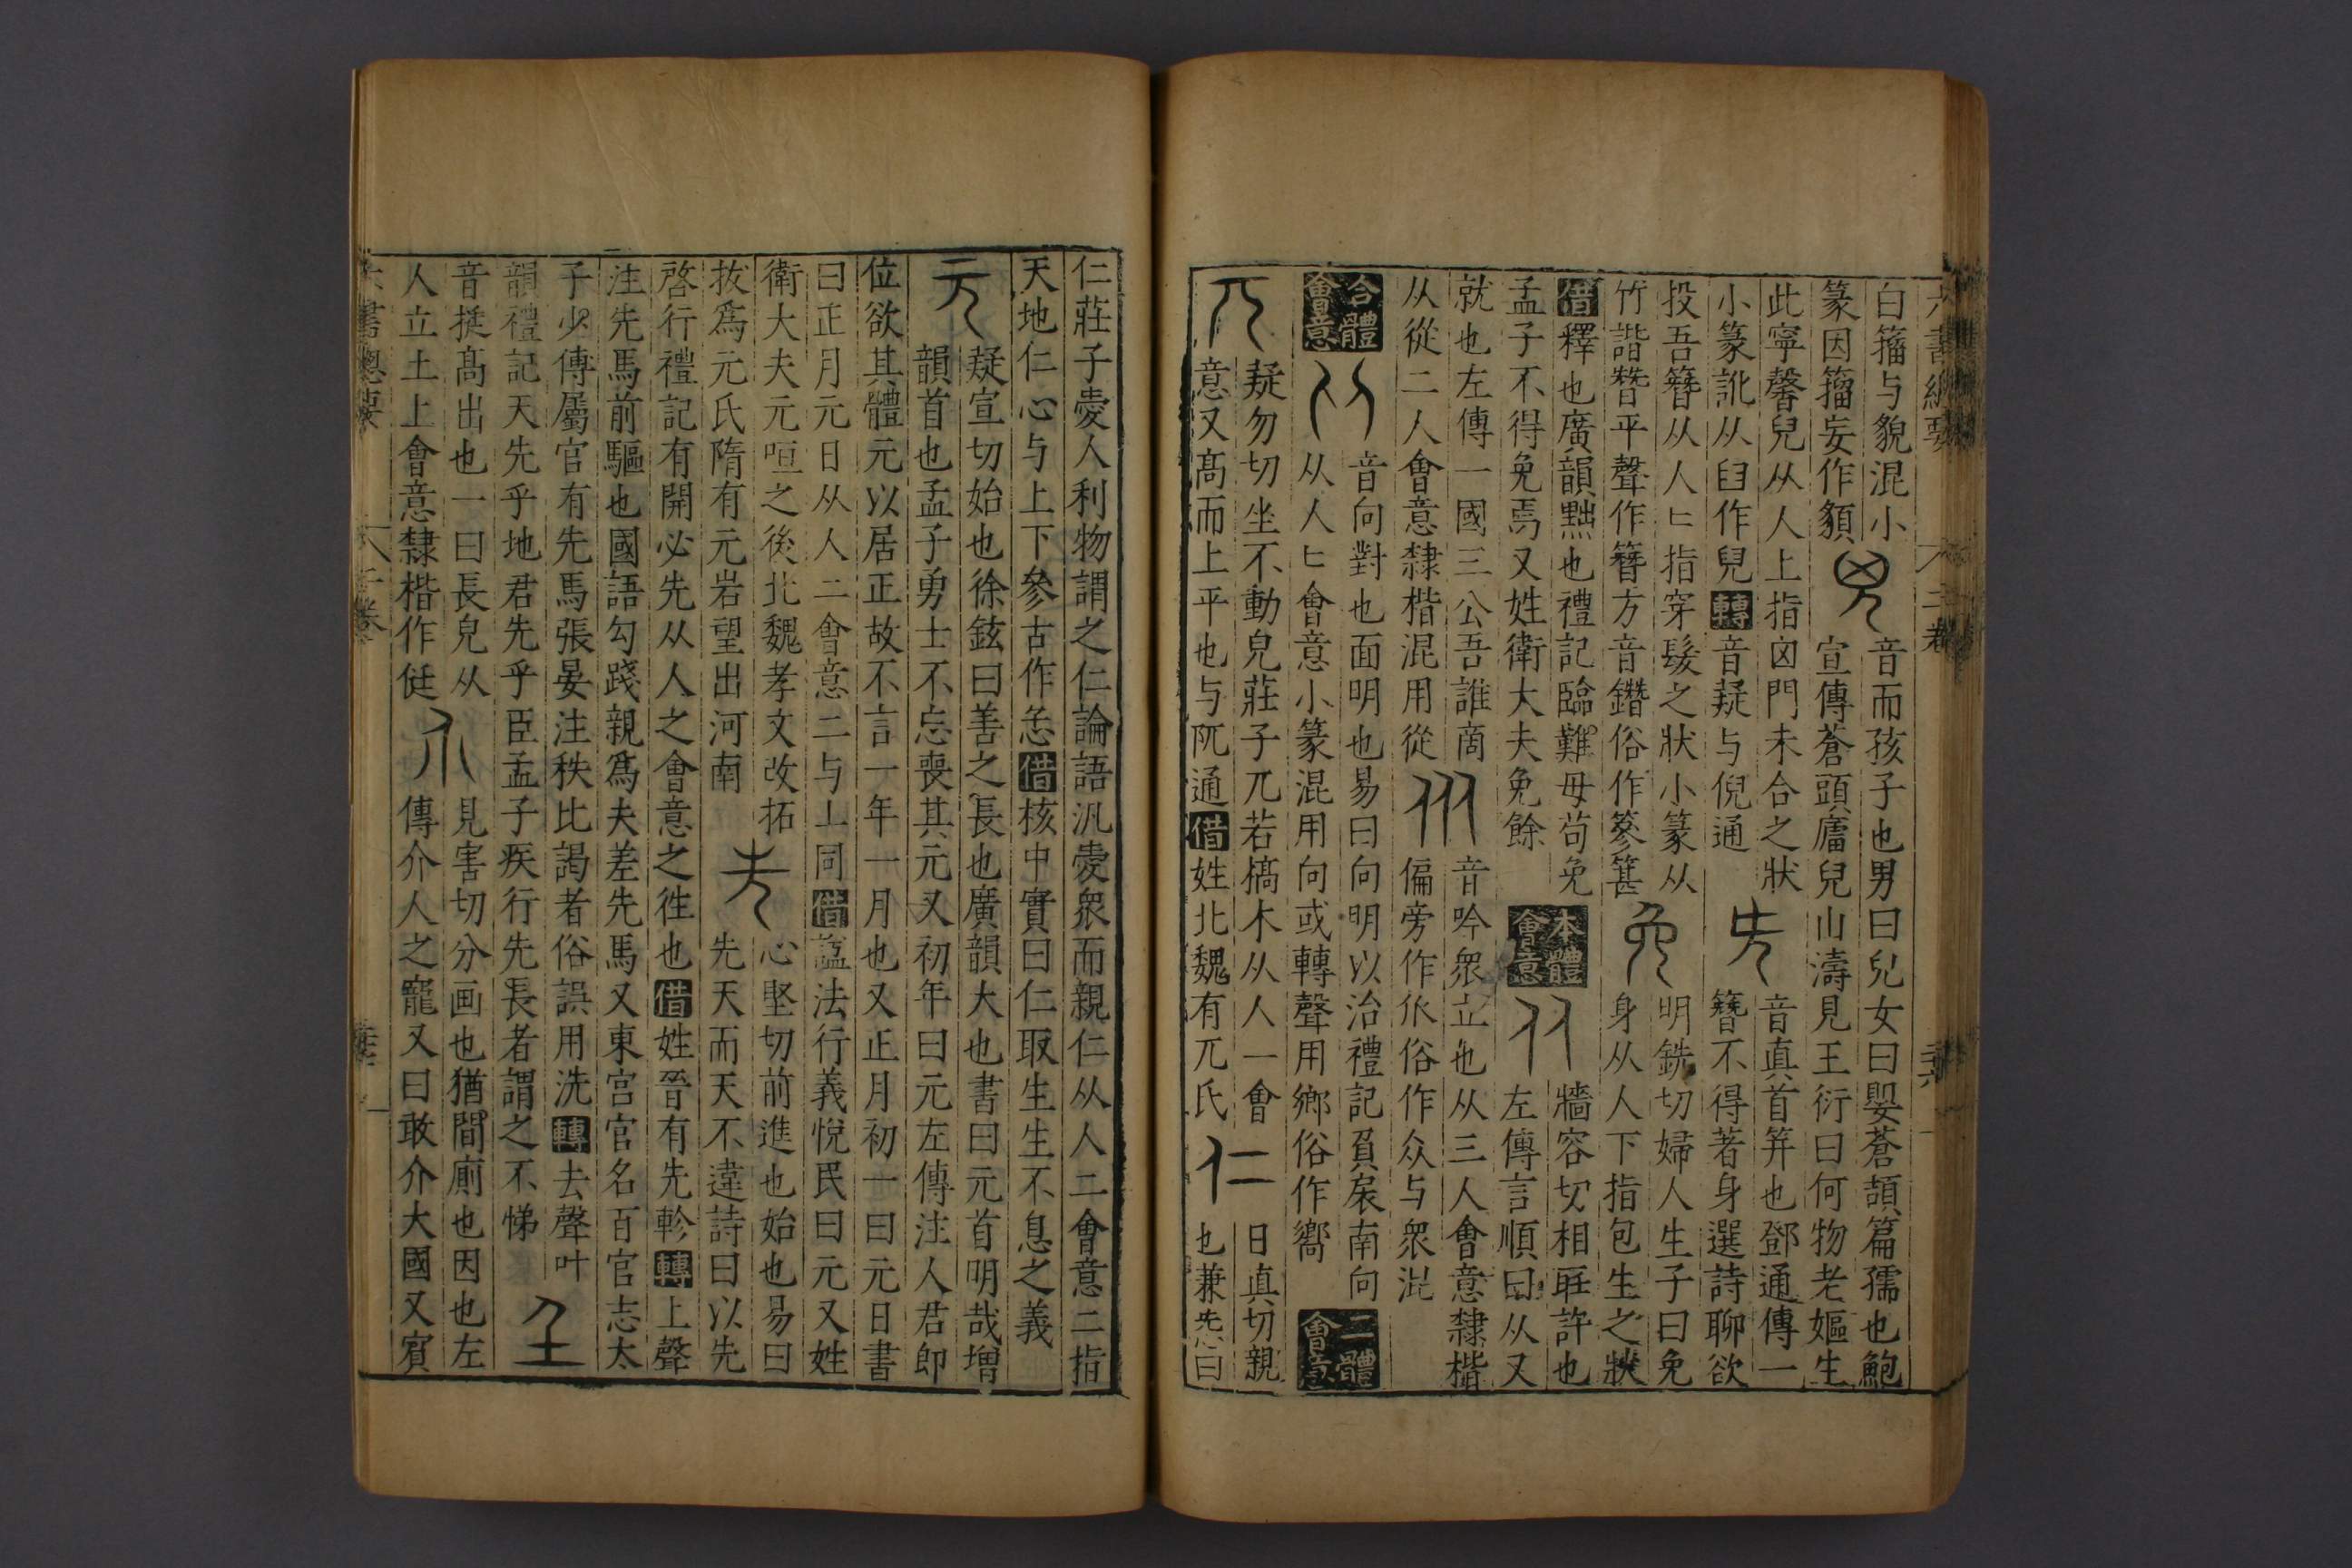 六書總要 二卷
白籀与貌混小 音而孩子也男曰兒女曰嬰蒼頡篇孺也鮑
篆因籀妄作䫉 宣傳蒼頭廬兒山濤見王衍曰何物老嫗生
此寧馨兒从人上指囟門未合之狀 音真首笄也鄧通傳一
小篆訛从臼作兒轉音疑与倪通 簪不得著身選詩聊欲
投吾簪从人匕指穿髮之狀小篆从 明銑切婦人生子曰免
竹諧朁平聲作簪方音鐕俗作篸篸 身从人下指包生之狀
借釋也廣韻黜也禮記臨難毋苟免 牆容切相聽許也
孟子不得免焉又姓衛大夫免餘 本體會意 左傳言順曰从又
就也左傳一國三公吾誰啇 音吟衆立也从三人會意隸楷
从從二人會意隸楷混用從 偏旁作㐺俗作众与衆混
合體會意 音向對也面明也易曰向明以治禮記負扆南向
从人匕會意小篆混用向或轉聲用鄉俗作嚮 二體會意
兀 疑勿切坐不動皃莊子兀若槁木从人一會 日真切親
意又高而上平也与阢通借姓北魏有兀氏 仁 也兼愛曰
仁莊子愛人利物謂之仁論語汎愛衆而親仁从人二會意二指
天地仁心与上下參古作忎借核中實曰仁取生生不息之義
元 疑宣切始也徐鉉曰善之長也廣韻大也書曰元首明哉增
韻首也孟子勇士不忘喪其元又初年曰元左傳注人君即
位欲其體元以居正故不言一年一月也又正月初一曰元日書
曰正月元日从人二會意二与丄同借諡法行義悅民曰元又姓
衛大夫元咺之後北魏孝文改拓 心堅切前進也始也易曰
拔爲元氏隋有元岩望出河南 先天而天不違詩曰以先
啓行禮記有開必先从人之會意之徃也借姓晉有先軫轉上聲
注先馬前驅也國語勾踐親爲夫差先馬又東宮官名百官志太
子少傳屬官有先馬張晏注秩比謁者俗誤用洗轉去聲叶
韻禮記天先乎地君先乎臣孟子疾行先長者謂之不悌
音挺髙出也一曰長皃从 見害切分画也猶間廁也因也左
人立土上會意隸楷作侹 傳介人之寵又曰敢介大國又賓
六書總要 二卷